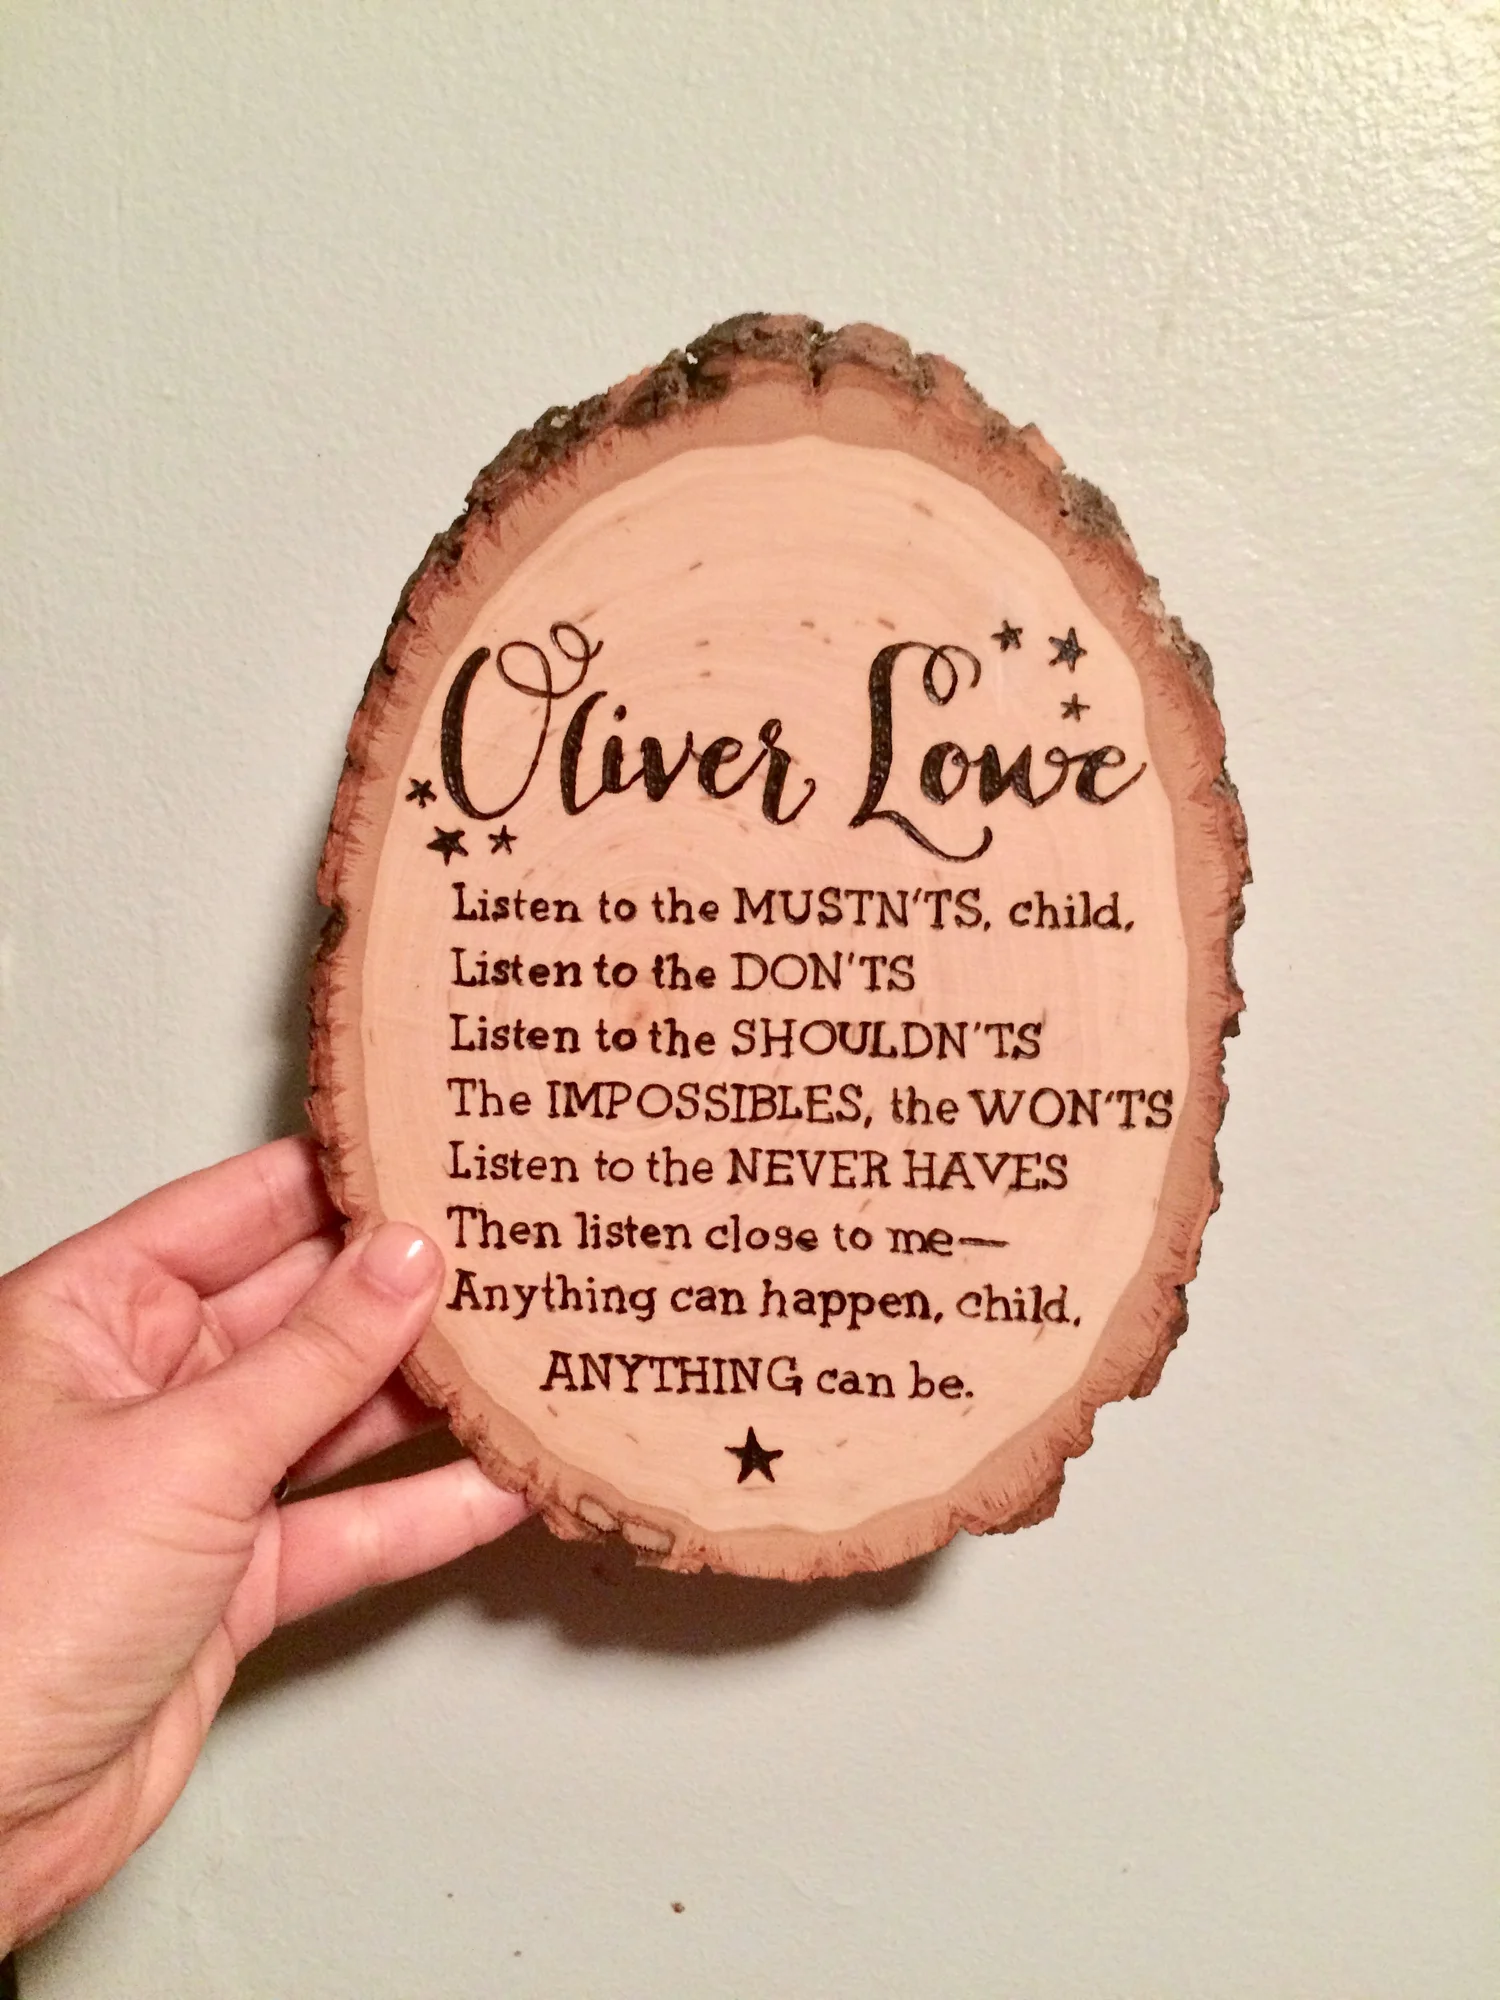 Oliver Lowe
Listen to the MUSTN'TS, child,
Listen to the DON'TS
Listen to the SHOULDN'TS
The IMPOSSIBLES, the WON'TS
Listen to the NEVER HAVES
Then listen close to me—
Anything can happen, child,
ANYTHING can be.